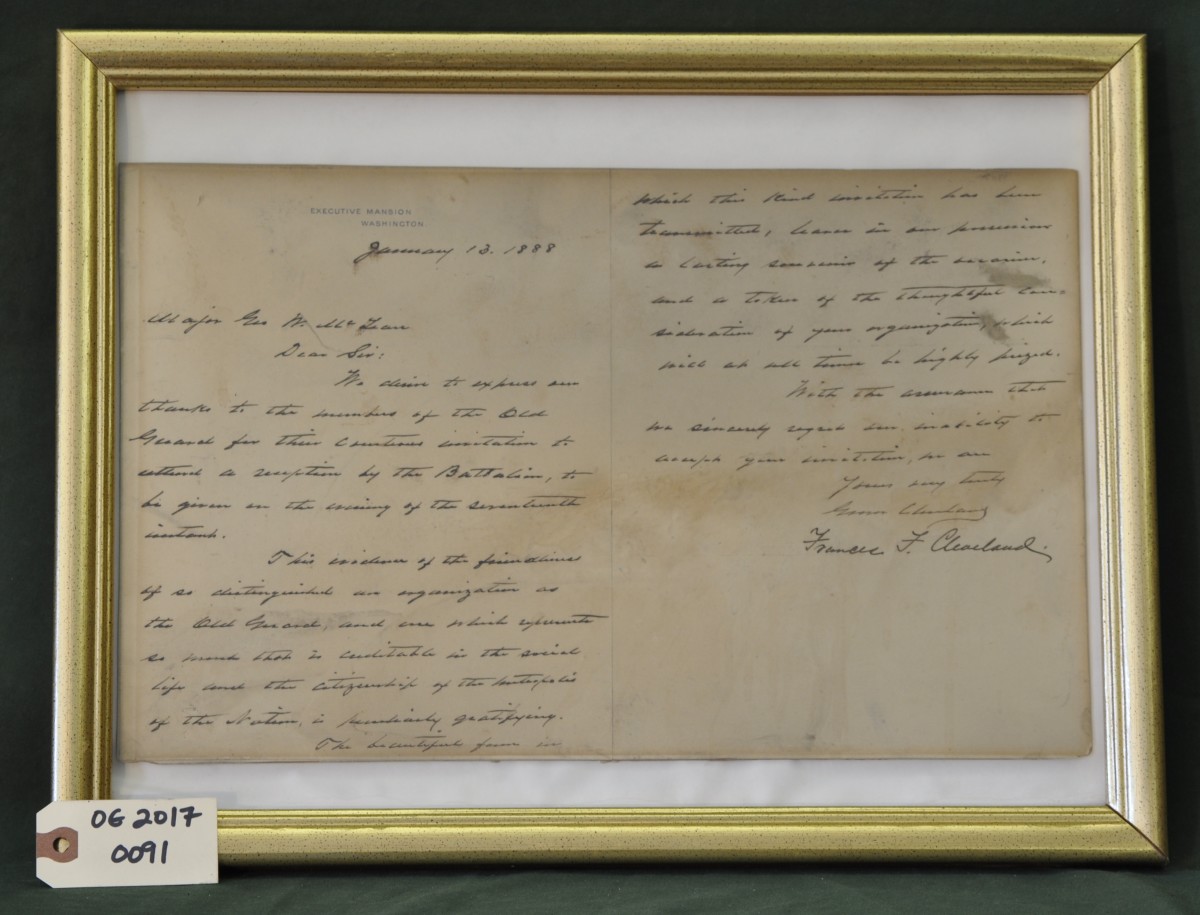 EXECUTIVE MANSION
WASHINGTON
January 13. 1888
Major Geo W. McLean
Dear Sir:
We desire to express our
thanks to the members of the Old
Guard for their courteous invitation to
attend a reception by the Battalion, to
be given on the evening of the seventeenth
instant.
This evidence of the friendliness
of so distinguished an organization as
the Old Guard, and one which represents
so much that is creditable in the social
life and the citizenship of the metropolis
of the Nation, is peculiarly gratifying.
The beautiful form in
which this kind invitation has been
transmitted, leaves in our possession
a lasting souvenir of the occasion,
and a token of the thoughtful con-
sideration of your organization, which
will at all times be highly prized.
With the assurance that
we sincerely regret our inability to
accept your invitation, we are
Yours very truly
Grover Cleveland
Frances F. Cleveland.
OG 2017
0091